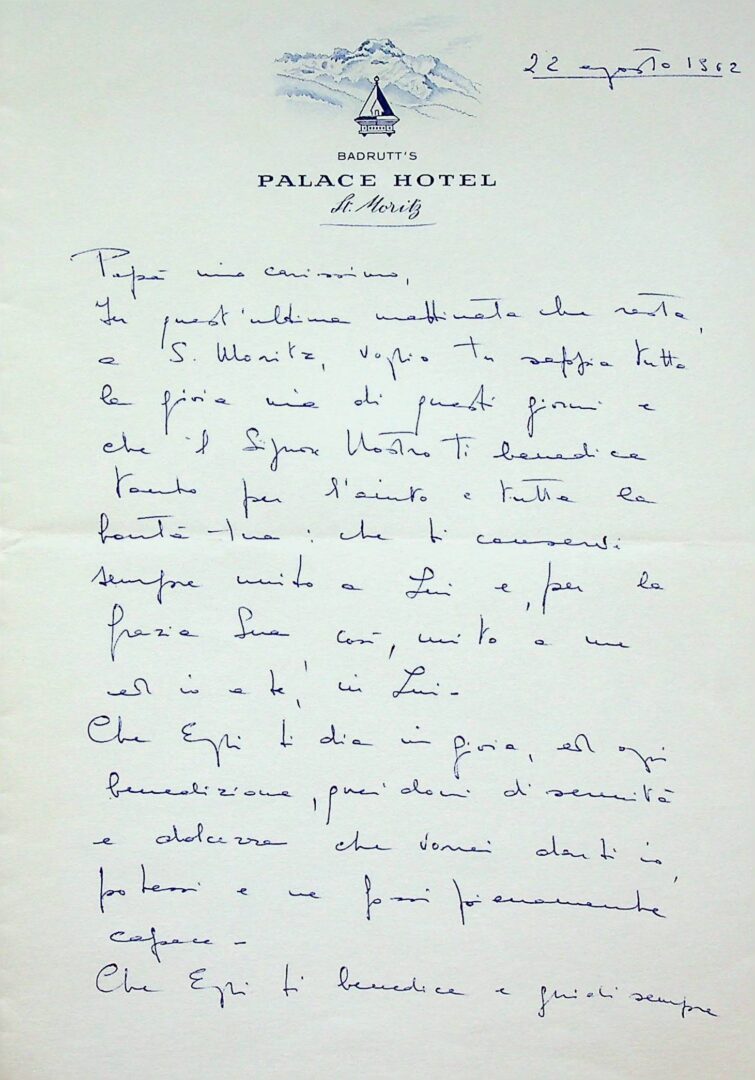 22 agosto 1962
BADRUTT'S
PALACE HOTEL
St. Moritz
Papà mio carissimo,
In quest'ultima mattinata che resta,
a S. Moritz, voglio Tu sappia tutta
la gioia mia di questi giorni e
che il Signor Nostro Ti benedica
tanto per l'aiuto e tutta la
bontà tua: che ti conservi
sempre unito a Lui e, per la
grazia Sua, così, unito a me
ed io a te, in Lui -
Che Egli ti dia in gioia, ed ogni
benedizione, quei doni di serenità
e dolcezza che vorrei darti io,
potessi e ne fossi pienamente
capace -
Che Egli ti benedica e guidi sempre